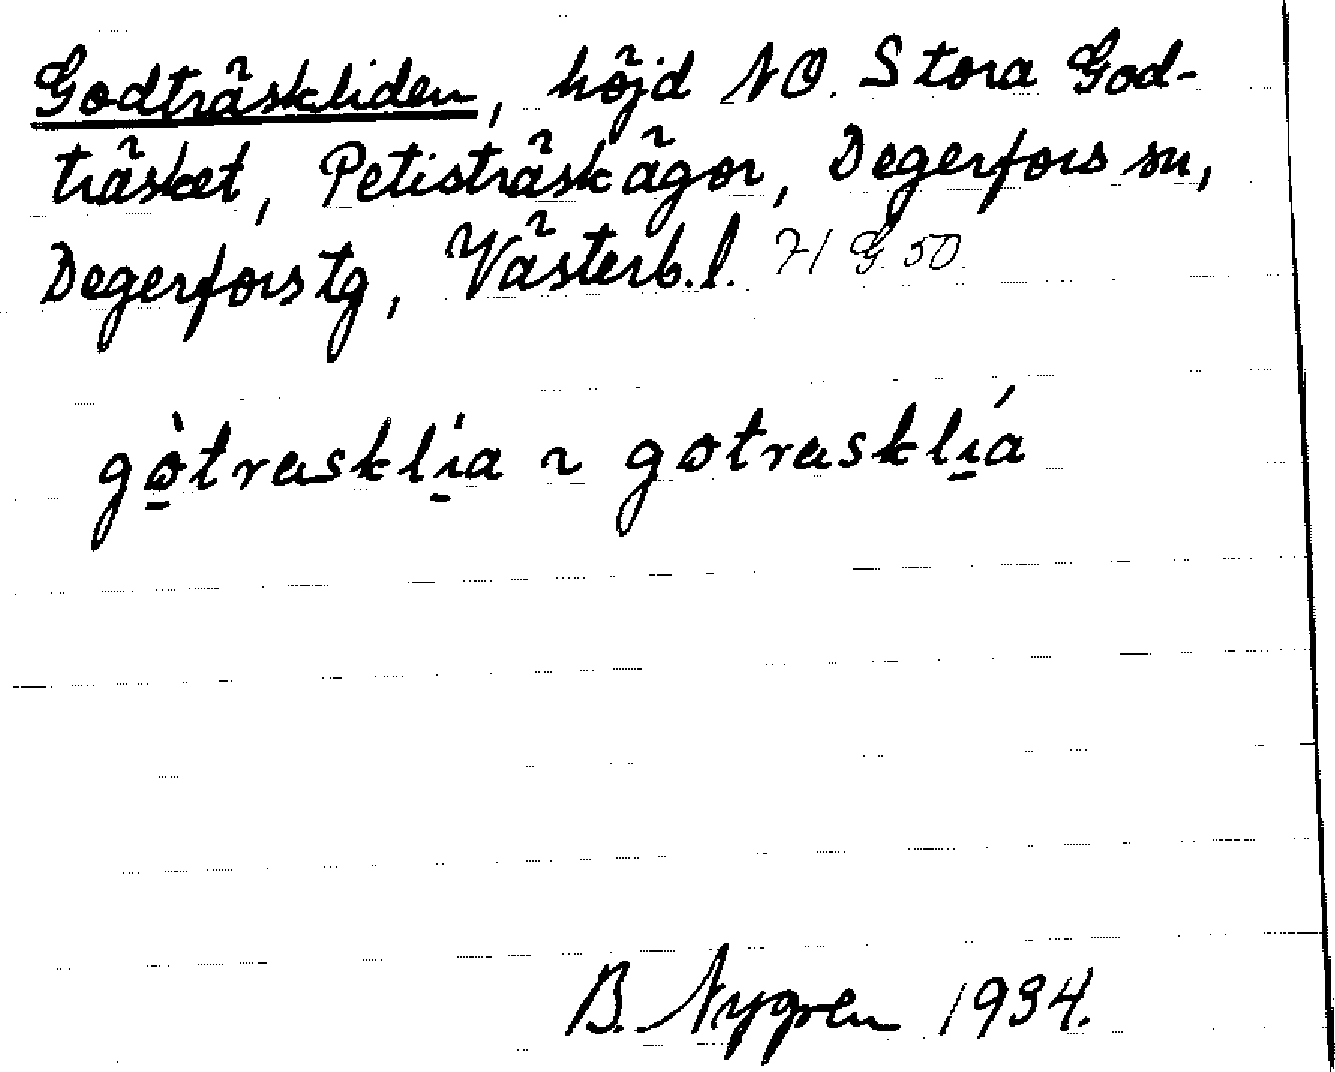 Godträskliden, höjd NO. Stora God-
träsket, Petisträsk ägor, Degerfors sn,
Degerfors tg, Västerb. l. 71 G 50
gòtrasklìa ~ gotrasklía
B. Nygren 1934.